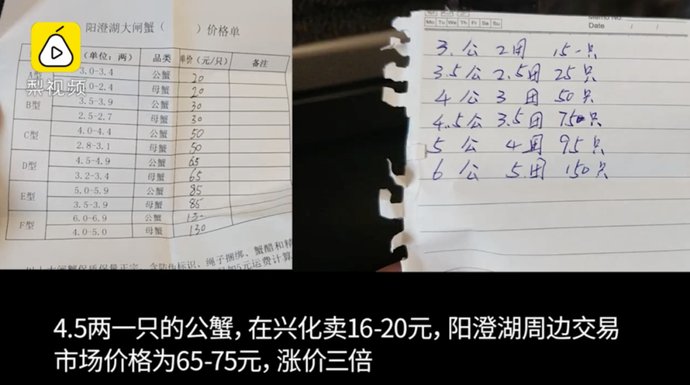 阳澄湖大闸蟹( )价格单
(单位:两) 品类 单价(元/只) 备注
3.0-3.4 公蟹 20
0-2.4 母蟹 20
B型 3.5-3.9 公蟹 30
2.5-2.7 母蟹 30
C型 4.0-4.4 公蟹 50
2.8-3.1 母蟹 50
D型 4.5-4.9 公蟹 65
3.2-3.4 母蟹 65
E型 5.0-5.9 公蟹 85
3.5-3.9 母蟹 85
F型 6.0-6.9 公蟹
4.0-5.0 母蟹 130
梨视频
Mo Tu We Th Fr Sa Su
Memo No.
Date / /
3.公 2团 15一只
3.5公 2.5团 25只
4公 3团 50只
4.5公 3.5团 75只
5公 4团 95只
6公 5团 150只
4.5两一只的公蟹,在兴化卖16-20元,阳澄湖周边交易
市场价格为65-75元,涨价三倍